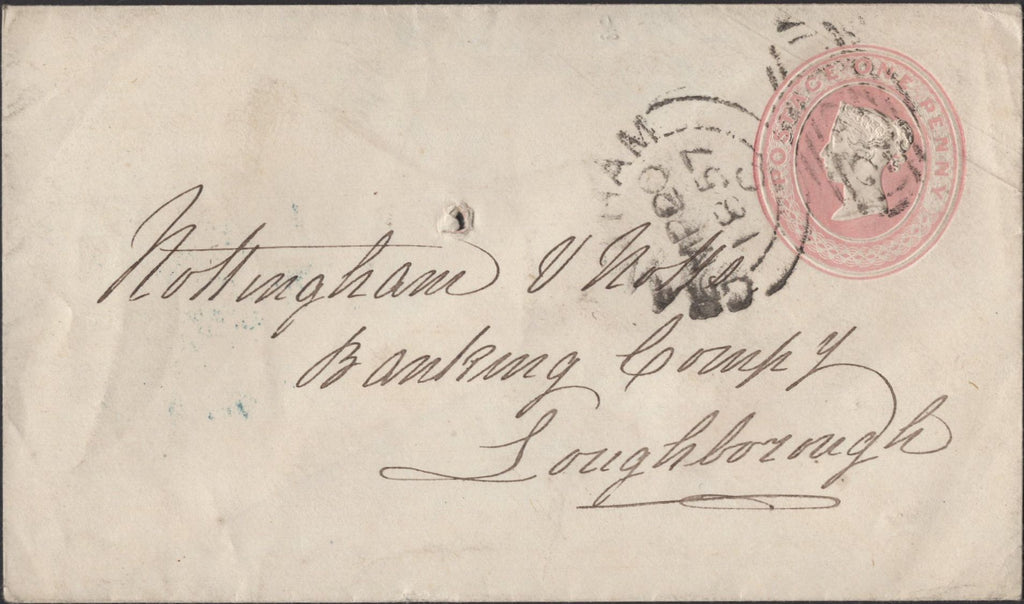 POSTAGE ONE PENNY
HAM
57
Nottingham & Notts
Banking Compy
Loughborough